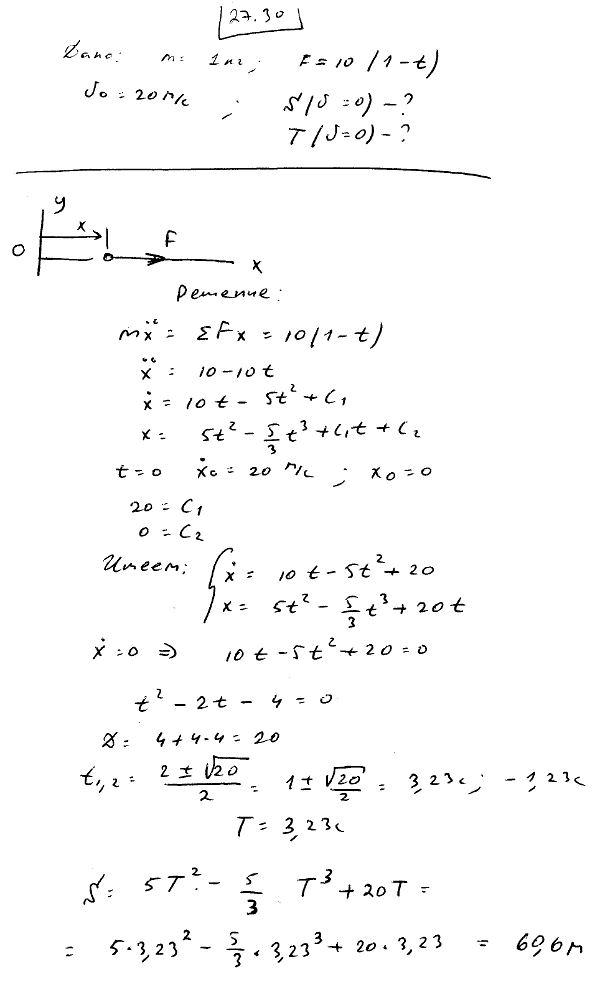 27.30
Дано: m = 1кг; F = 10(1-t)
v₀ = 20 м/с; S(v=0) - ?
T(v=0) - ?
y
x
F
O
x
Решение:
mẍ = ΣFx = 10(1-t)
ẍ = 10-10t
ẋ = 10t - 5t² + C₁
x = 5t² - 5/3 t³ + C₁t + C₂
t=0 ẋ₀ = 20 м/с; x₀=0
20 = C₁
0 = C₂
Имеем: { ẋ = 10t - 5t² + 20
x = 5t² - 5/3 t³ + 20t
ẋ=0 ⇒ 10t - 5t² + 20 = 0
t² - 2t - 4 = 0
D = 4+4·4 = 20
t₁,₂ = (2 ± √20)/2 = 1 ± √20/2 = 3,23с; -1,23с
T = 3,23с
S = 5T² - 5/3 T³ + 20T =
= 5·3,23² - 5/3 · 3,23³ + 20·3,23 = 60,6м